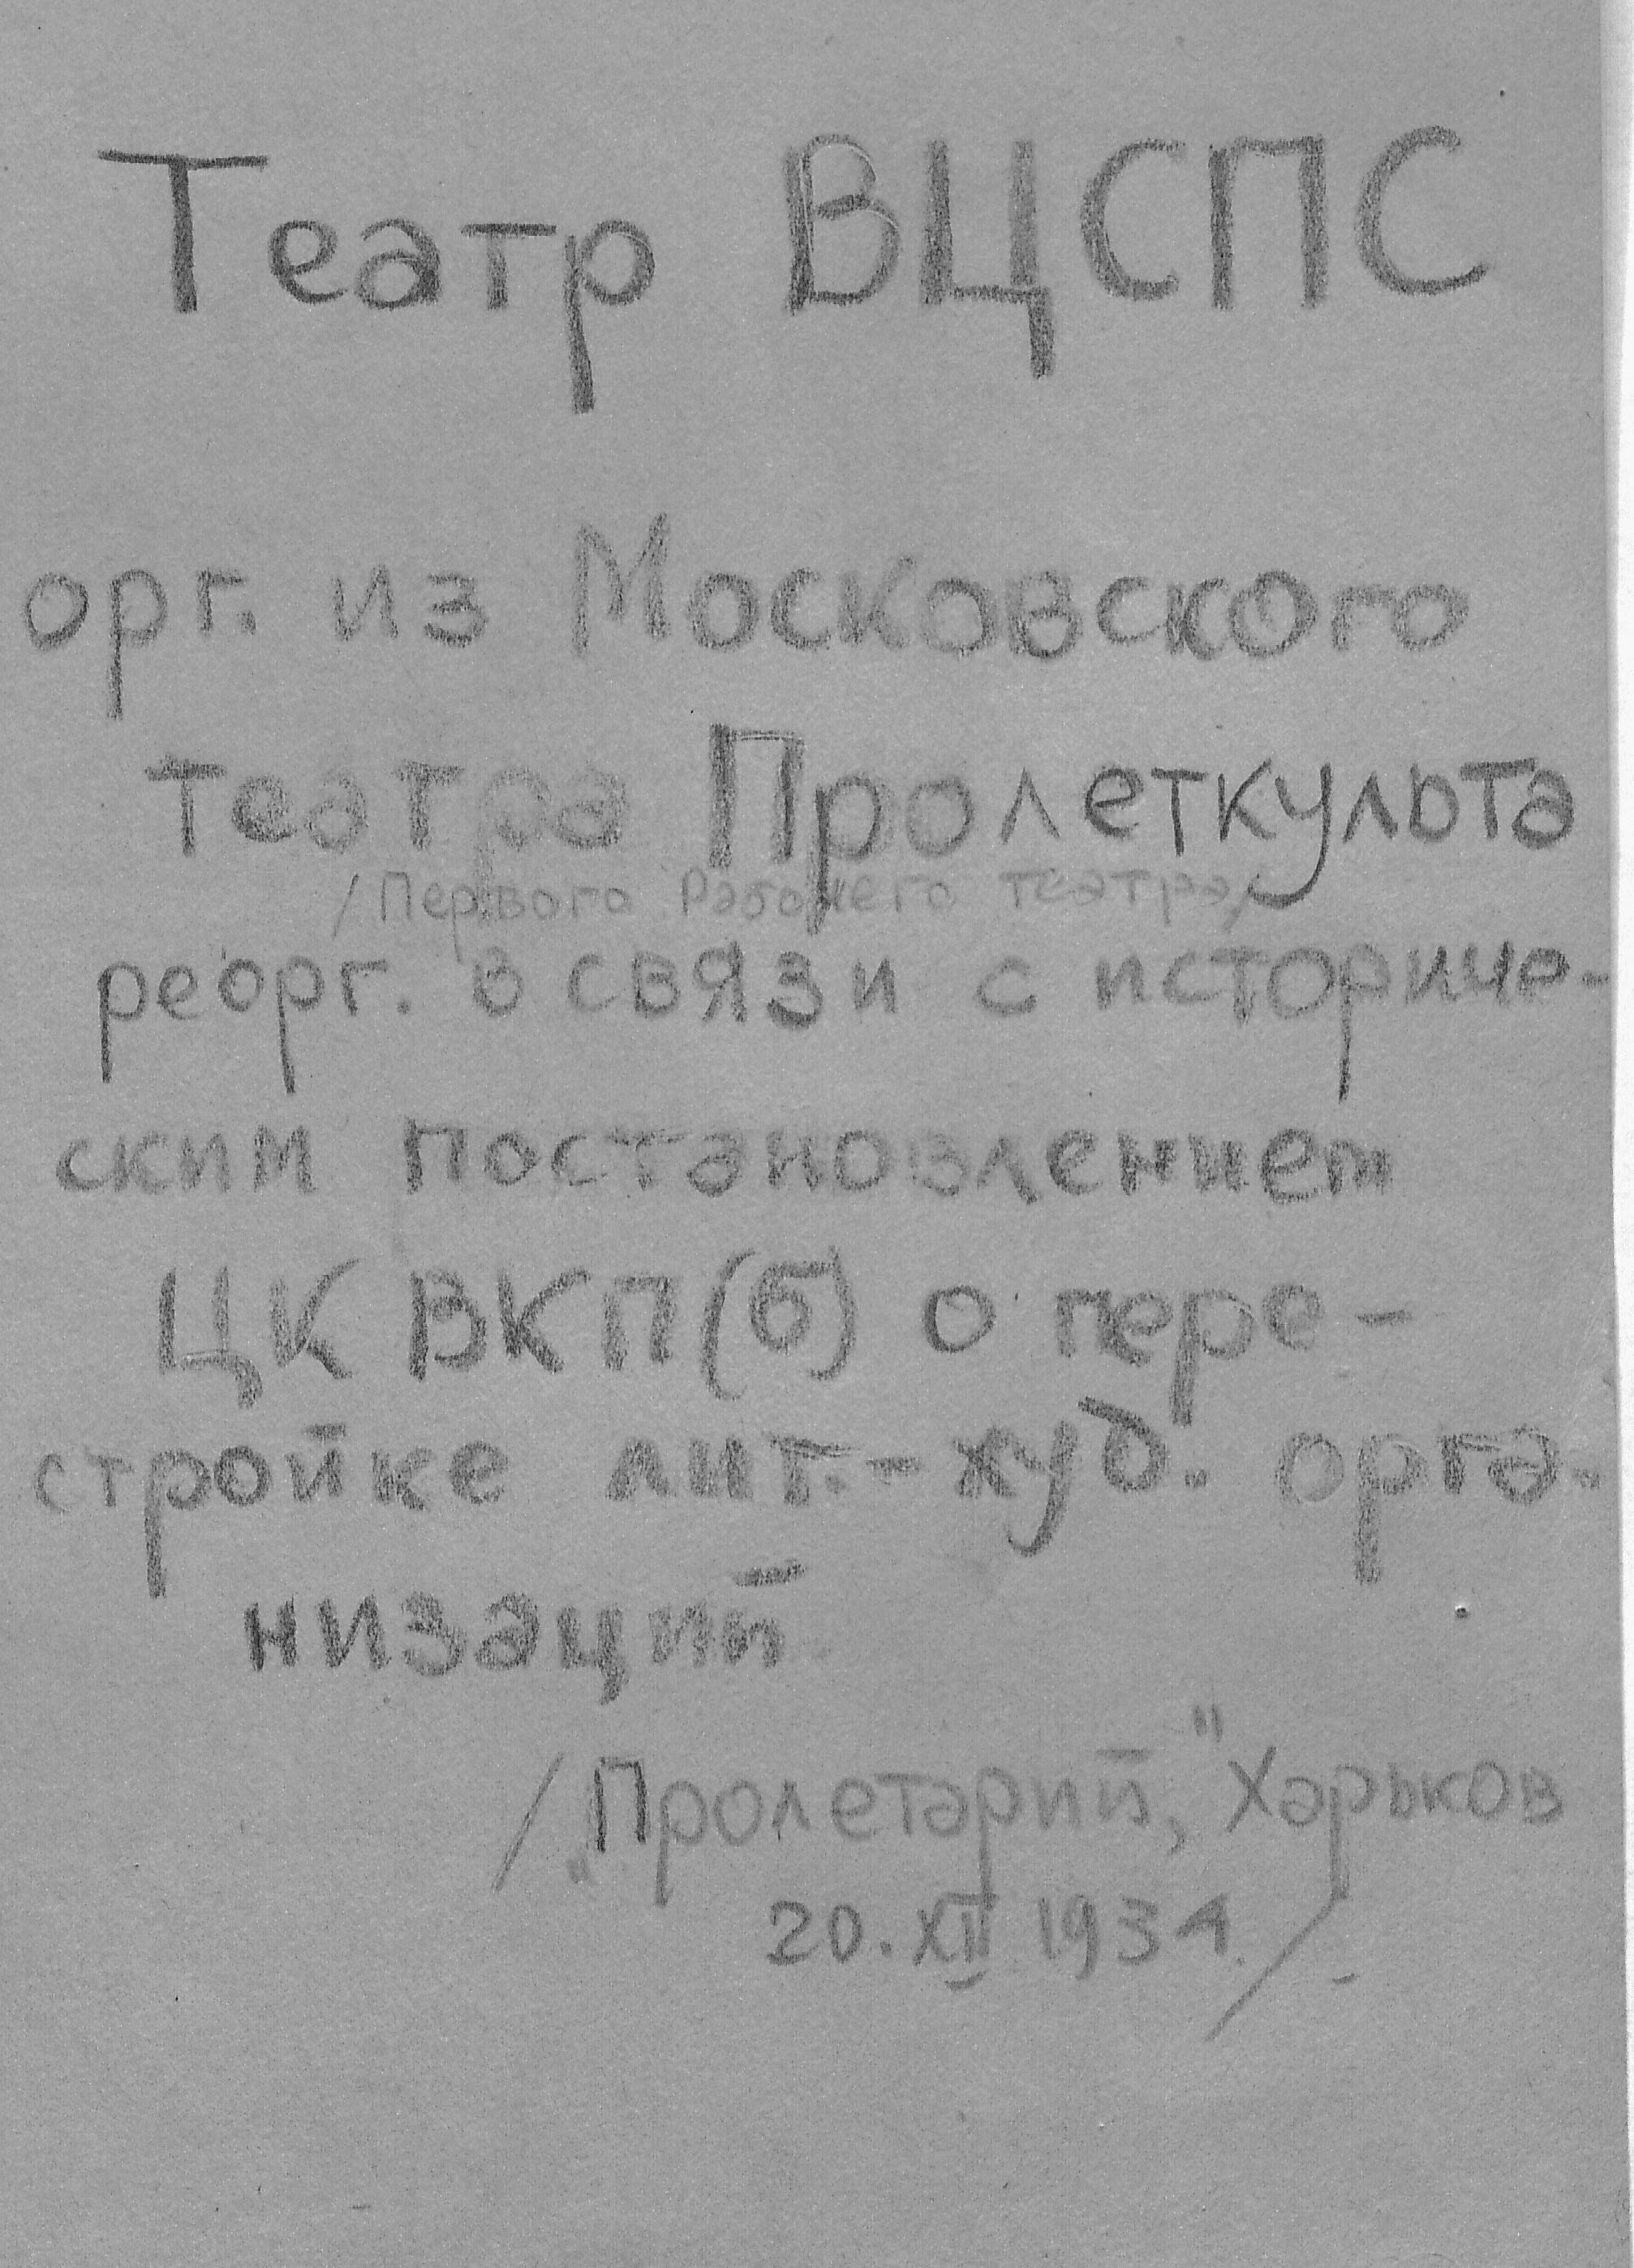 Театр ВЦСПС
орг. из Московского
театра Пролеткульта
/Первого Рабочего театра/
реорг. в связи с историче-
ским постановлением
ЦК ВКП(б) о пере-
стройке лит.-худ. орга-
низаций
/„Пролетарий,“ Харьков
20. XII 1934./